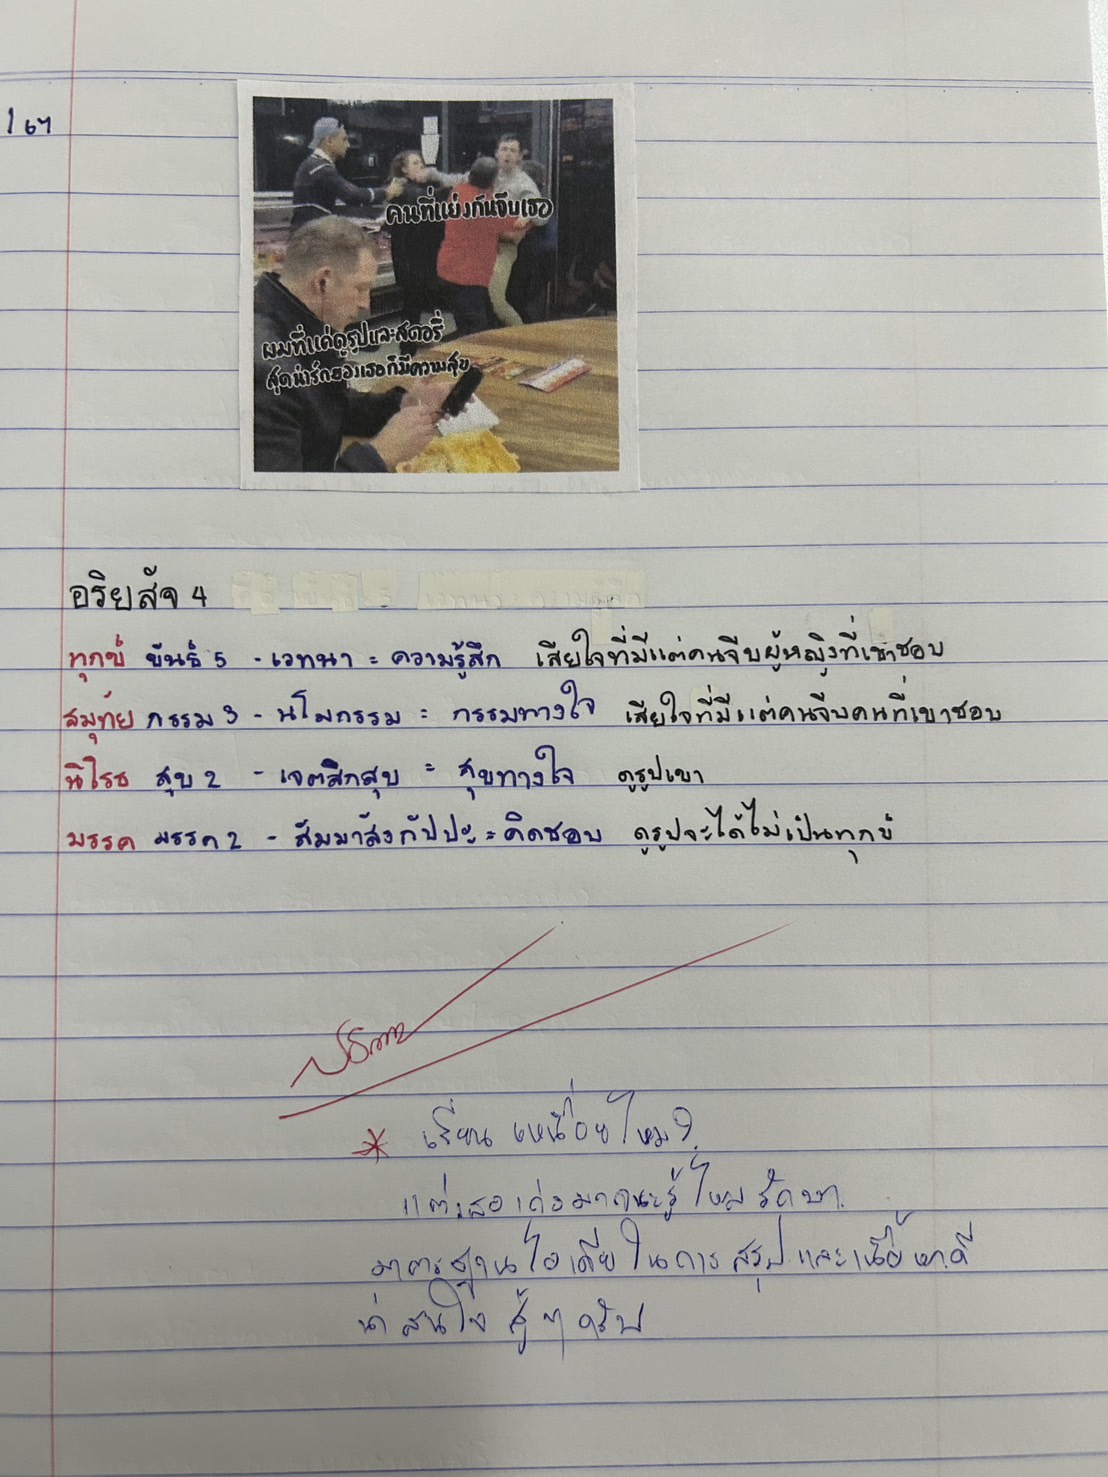 คนที่แย่งกันจีบเธอ
ผมที่แค่ดูรูปและสตอรี่
สุดน่ารักของเธอก็มีความสุข
อริยสัจ 4
ทุกข์ ขันธ์ 5 - เวทนา = ความรู้สึก เสียใจที่มีแต่คนจีบผู้หญิงที่เขาชอบ
สมุทัย กรรม 3 - มโนกรรม = กรรมทางใจ เสียใจที่มีแต่คนจีบคนที่เขาชอบ
นิโรธ สุข 2 - เจตสิกสุข = สุขทางใจ ดูรูปเขา
มรรค มรรค 2 - สัมมาสังกัปปะ = คิดชอบ ดูรูปจะได้ไม่เป็นทุกข์
* เรียน เหนื่อยไหม?
แต่เธอเก่งมากนะรู้ไหม รักษา
มาตรฐานไอเดียในการสรุปและเนื้อหาดี
น่าสนใจ สู้ๆ ครับ